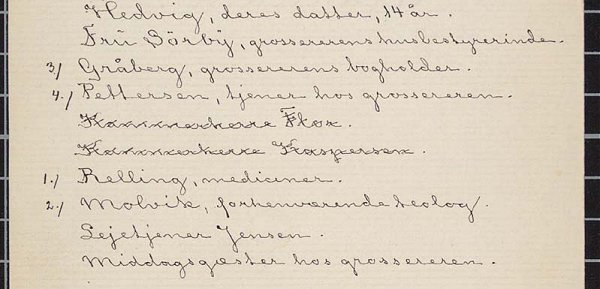 Hedvig, deres datter, 14 år.
Fru Sörby, grossererens husbestyrerinde.
3/ Gråberg, grossererens bogholder.
4./ Pettersen, tjener hos grossereren.
Kammerherre Flor.
Kammerherre Kaspersen.
1./ Relling, mediciner.
2./ Molvik, forhenværende teolog.
Lejetjener Jensen.
Middagsgæster hos grossereren.